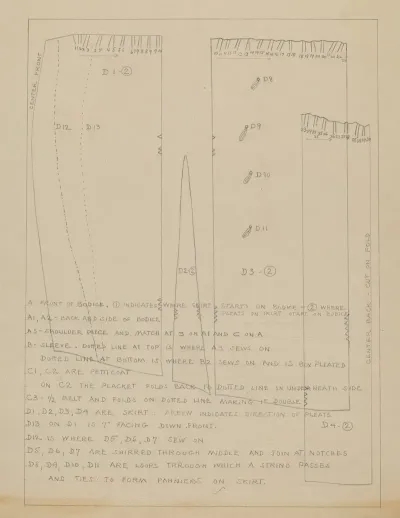 CENTER FRONT
D1-②
D12
D13
D8
D9
D10
D11
D2-②
D3-②
CENTER BACK CUT ON FOLD
D4-②
A FRONT OF BODICE. ① INDICATES WHERE SKIRT STARTS ON BODICE - ② WHERE
A1, A2 - BACK AND SIDE OF BODICE
A3 - SHOULDER PIECE AND MATCH AT S ON A1 AND C ON A
B - SLEEVE. DOTTED LINE AT TOP IS WHERE A3 SEWS ON
DOTTED LINE AT BOTTOM IS WHERE B2 SEWS ON AND IS BOX PLEATED
C1, C2 ARE PETTICOAT
ON C2 THE PLACKET FOLDS BACK TO DOTTED LINE IN UNDERNEATH SIDE
C3 - ½ BELT AND FOLDS ON DOTTED LINE MAKING IT DOUBLE
D1, D2, D3, D4 ARE SKIRT. ARROW INDICATES DIRECTION OF PLEATS
D13 ON D1 IS 1" FACING DOWN FRONT.
D12 IS WHERE D5, D6, D7 SEW ON
D5, D6, D7 ARE SHIRRED THROUGH MIDDLE AND JOIN AT NOTCHES
D8, D9, D10, D11 ARE LOOPS THROUGH WHICH A STRING PASSES
AND TIES TO FORM PANNIERS ON SKIRT.